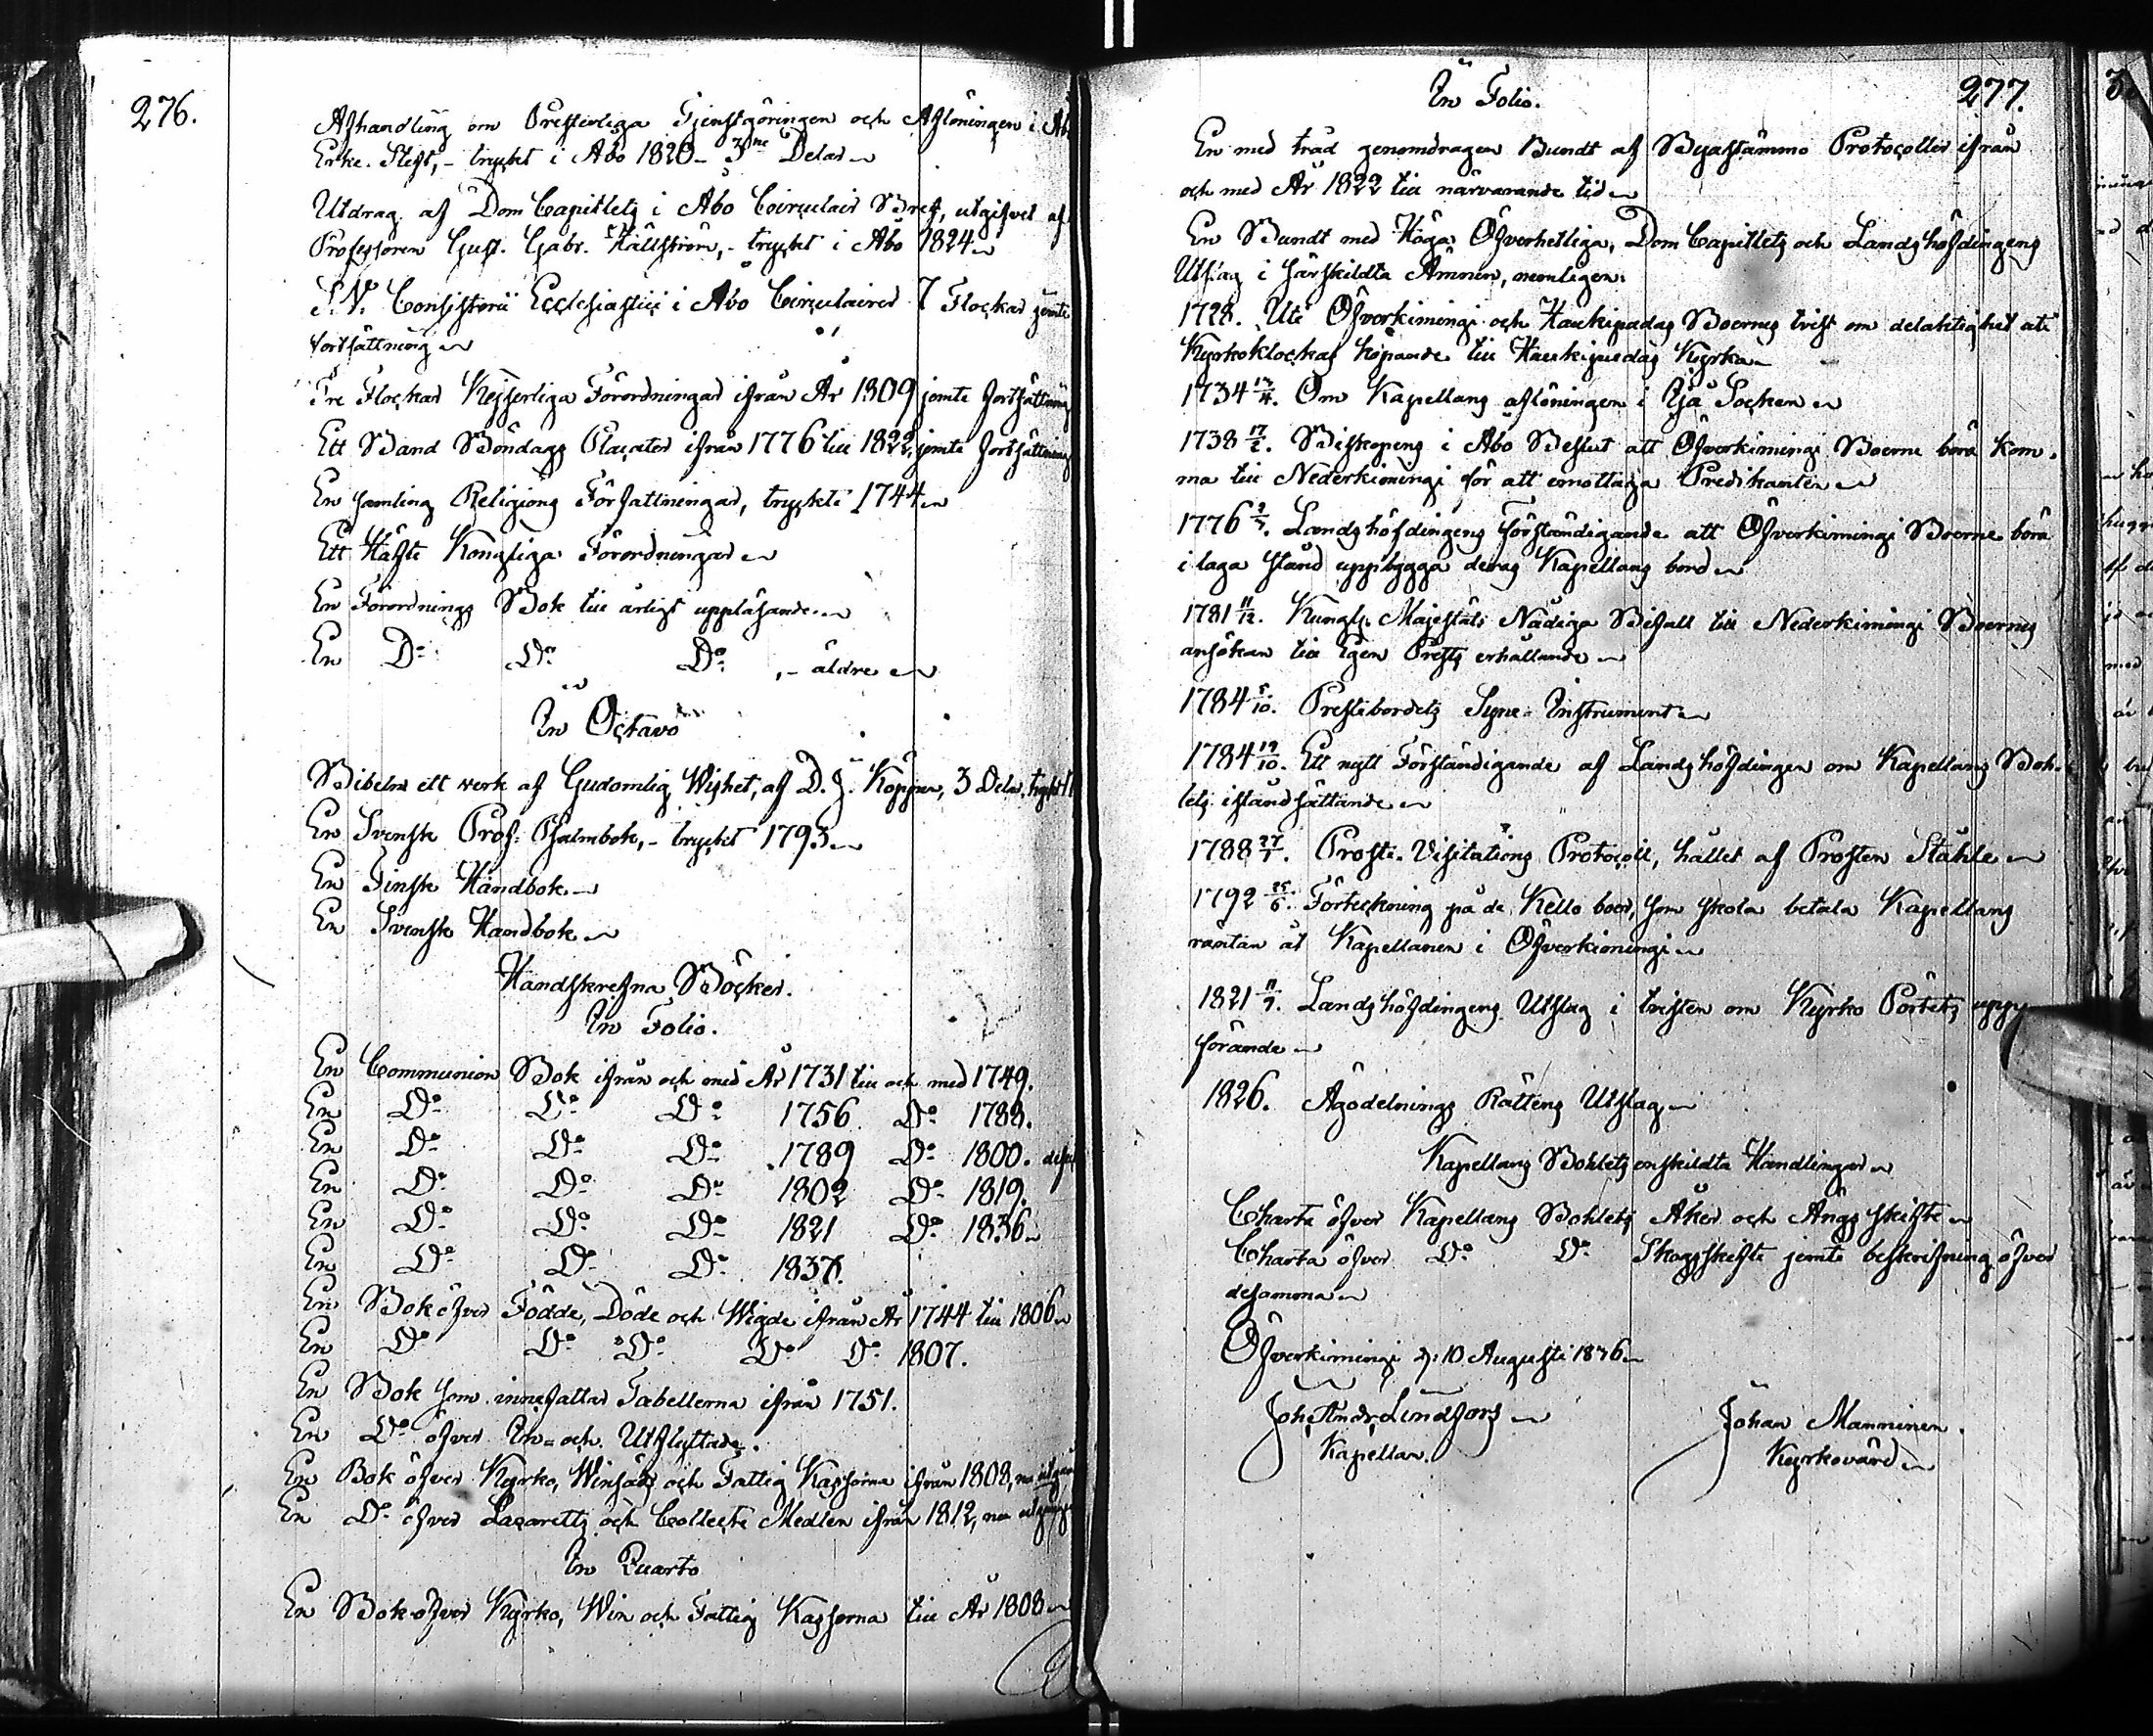 276.
Afhandling om Presterliga Tjenstgöringen och Aflöningen i Åbo
Erke. Stift, - tryckt i Åbo 1820 - 3ne Delar
Utdrag af Dom Capitlets i Åbo Circulair Bref, utgifvet af
Professoren Gust. Gabr. Hällström, - tryckt i Åbo 1824
S. V. Consistorii Ecclesiastici i Åbo Circulairer 7 Flockar jemte
fortsättning
Tre Flockar Kejserliga Förordningar ifrån År 1809 jemte fortsättning
Ett Band Böndags Placater ifrån 1776 till 1822, jemte fortsättning
En samling Religions Författningar, tryckte 1744
Ett Häfte Kongliga Förordningar
En Förordnings Bok till årligt uppläsande.
En Do Do Do, - äldre
In Octavo
Bibeln ett verk af Gudomlig Wishet, af D. J. Köppen, 3 Delar,
En Svensk Prof. Psalmbok, - tryckt 1793.
En Finsk Handbok
En Svensk Handbok
Handskrefna Böcker.
In Folio.
En Communion Bok ifrån och med År 1731 till och med 1749.
En Do Do Do 1756 Do 1788.
En Do Do Do 1789 Do 1800.
En Do Do Do 1802 Do 1819.
En Do Do Do 1821 Do 1836
En Do Do Do 1837.
En Bok öfver Födde, Döde och Wigde ifrån År 1744 till 1806
En Do Do Do Do Do 1807.
En Bok som innefattar Tabellerna ifrån 1751.
En Do öfver In- och Utflyttade.
En Bok öfver Kyrko, Winsäds och Fattig Kassorna ifrån 1808,
En Do öfver Lazaretts och Collecte Medlen ifrån 1812,
In Quarto
En Bok öfver Kyrko, Win och Fattig Kassorna till År 1808
277.
In Folio.
En med tråd genomdragen Bundt af Byastämmo Protocoller ifrån
och med År 1822 till närvarande tid
En Bundt med Höga Öfverhetliga, Dom Capitlets och Landshöfdingens
Utslag i särskildta Ämnen, nemligen:
1728. Uti Öfverkimingi och Haukipudas Boernes tvist om delaktighet uti
Kyrkoklockas köpande till Haukipudas Kyrka
1734 Om Kapellans aflöningen i Ijå Socken
1738 17/2. Biskopens i Åbo Beslut att Öfverkimingi Boerne böra kom-
ma till Nederkimingi för att emottaga Predikanten
1776 Landshöfdingens förständigande att Öfverkimingi Boerne böra
i laga stånd uppbygga deras Kapellans bord
1781 11/12. Kungl. Majestäts Nådiga Bifall till Nederkimingi Boernes
ansökan till Egen Prests erhållande
1784 5/10. Prestebordets Syne-Instrument
1784 19/10. Ett nytt Förständigande af Landshöfdingen om Kapellans Boh-
lets iståndsättande
1788 27/7. Prosti-Visitations Protocoll, hållet af Prosten Ståhle
1792 25/6. Förteckning på de Kello boer, som skola betala Kapellans
räntan åt Kapellanen i Öfverkimingi
1821 11/7. Landshöfdingens Utslag i tvisten om Kyrko Pörtets upp-
förande
1826. Ägodelnings Rättens Utslag
Kapellans Bohlets enskildta Handlingar
Charta öfver Kapellans Bohlets Åker och Ängs skifte
Charta öfver Do Do Skogsskifte jemte beskrifning öfver
desamma
Öfverkimingi d: 10 Augusti 1836
Joh. Andr. Lindfors
Kapellan.
Johan Manninen.
Kyrkovärd